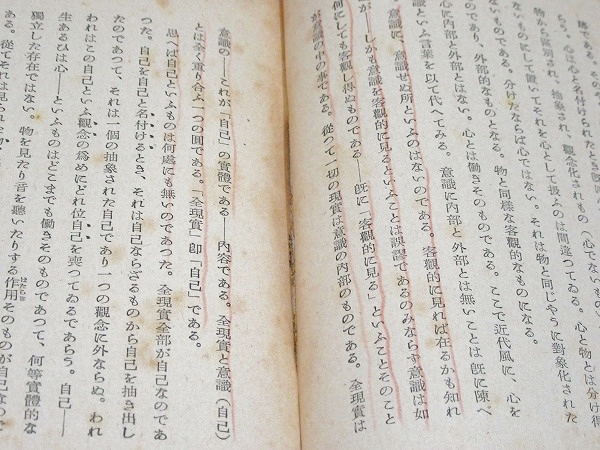 跡である。その
らう。心は心と名付けられたとき
物から區別され、抽象され、觀念化されもの(心でないもの)
ないものにして置いてそれを心として扱ふのは間違つてゐる。心と物とは分け得
ないものである。分けたならば心ではない。それは物と同じやうに對象化された
ものであり、外部的なものとなる。物と同樣な客觀的なものになる。
心に内部と外部とはない。心とは働きそのものである。ここで近代風に、心を
識といふ言葉を以て代へてみる。意識に内部と外部とは無いことは既に陳べ
意識に、意識せぬ所といふのはないのである。客觀的に見れば在るかも知れ
が――しかも意識を客觀的に見るといふことは誤謬であるのみならず意識は如
何にしても客觀し得ぬものである――既に「客觀的に見る」といふことそのこと
が意識の中の事である。從つて一切の現實は意識の内部のものである。全現實は
意識の――これが「自己」の實體である――内容である。全現實と意識(自己)
とは全く重り合ふ一つの圓である。「全現實」卽「自己」である。
思へば自己といふものは何處にも無いのであつた。全現實全部が自己なのであ
つた。自己を自己と名付けるとき、それは自己ならざるものから自己を抽き出し
たのであつて、それは一個の抽象された自己であり一つの觀念に外ならぬ。われ
われはこの自己といふ觀念の爲めにどれ位自己を喪つてゐるであらう。自己――
生あるひは心――といふものはどこまでも働きそのものであつて、何等實體的な
獨立した存在ではない。物を見たり音を聽いたりする作用そのものが自己なの
ある。從てそれは見られたり